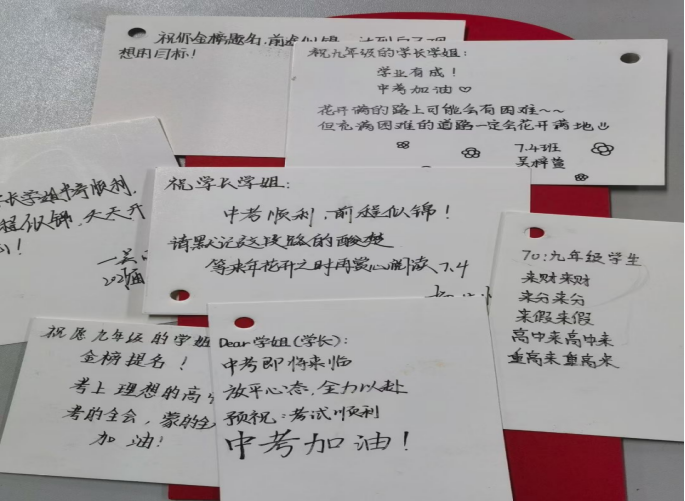 祝你金榜题名,前途似锦,达到自己理
想的目标!
祝九年级的学长学姐:
学业有成!
中考加油♡
花开满的路上可能会有困难~~
但充满困难的道路一定会花开满地
7.4班
吴梓萱
长学姐中考顺利,
程似锦,天天开
心!
祝学长学姐:
中考顺利,前程似锦!
请默记这段路的酸楚
等来年花开之时再赏心阅读 7.4
To:九年级学生
来财来财
来分来分
来假来假
高中来高中来
重高来重高来
祝愿九年级的学姐
金榜提名!
考上理想的高中
考的全会,蒙的全
加油!
Dear学姐(学长):
中考即将来临
放平心态,全力以赴
预祝:考试顺利
中考加油!